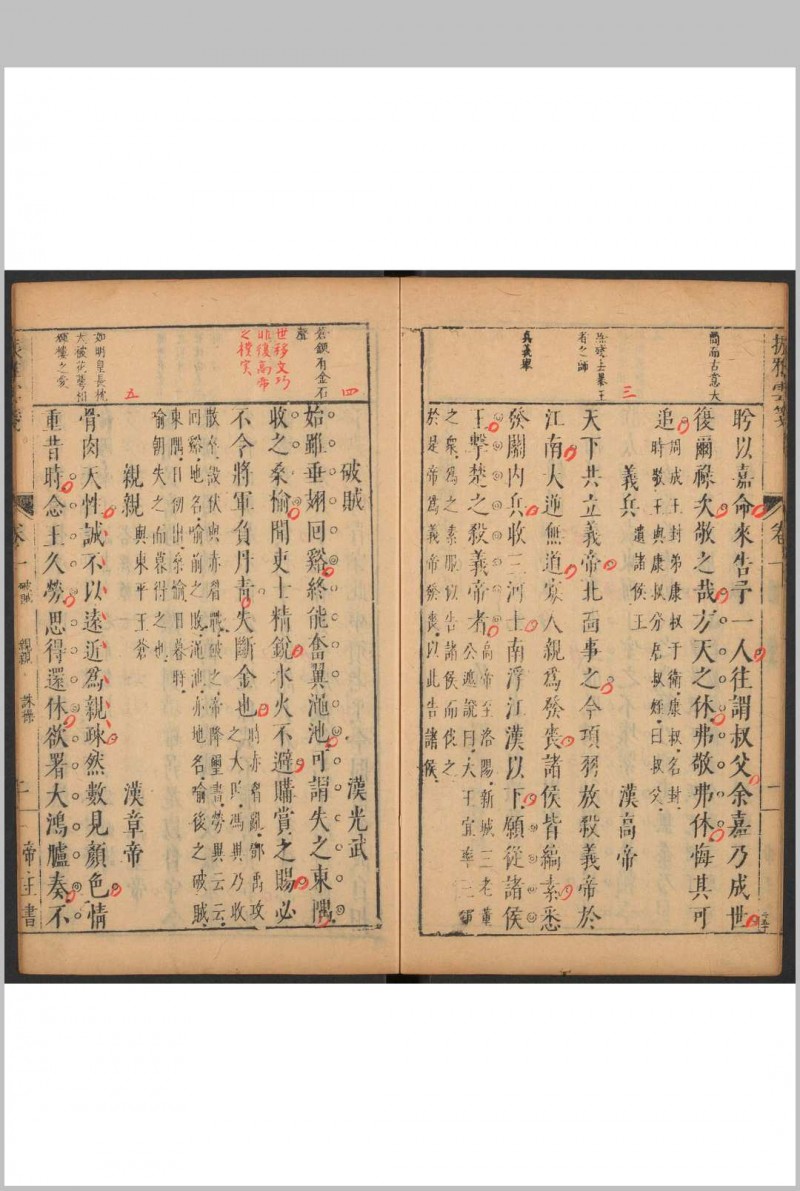 簡而古當大
昤以嘉命來告予一人往謂叔父余嘉乃成世
復爾祿次敬之哉方天之休弗敬弗休悔其可
追
周成王封弟康叔于衛康叔名封
時敬王與康叔分居叔姪曰叔父
三
義兵
遺諸侯王
漢高帝
天下共立義帝北面事之今項羽放殺義帝於
江南大逆無道寡人親為發喪諸侯皆縞素悉
發關內兵收三河士南浮江漢以下願從諸侯
王擊楚之殺義帝者
高帝至洛陽新城三老董
公遮說曰大王宜率三軍
之眾為之素服以告諸侯而伐之
於是帝為義帝發喪以此告諸侯
四
有金石
聲
世移文巧
非復高帝
之樸實
破賊
漢光武
始雖垂翅回谿終能奮翼澠池可謂失之東隅
收之桑榆聞吏士精銳水火不避購賞之賜必
不令將軍負丹青失斷金也
時赤眉亂鄧禹攻
之大敗馮異乃收
散卒設伏與赤眉戰破之帝降璽書勞異云云
回谿地名喻前之敗澠池亦地名喻後之破賊
東隅日初出桑榆日暮時
喻朝失之而暮得之也
五
如明皇長枕
大被花萼相
輝樓之愛
親親
與東平王蒼
漢章帝
骨肉天性誠不以遠近為親疎然數見顏色情
重昔時念王久勞思得還休欲署大鴻臚奏不
卷一
破賊
親親
帝王書